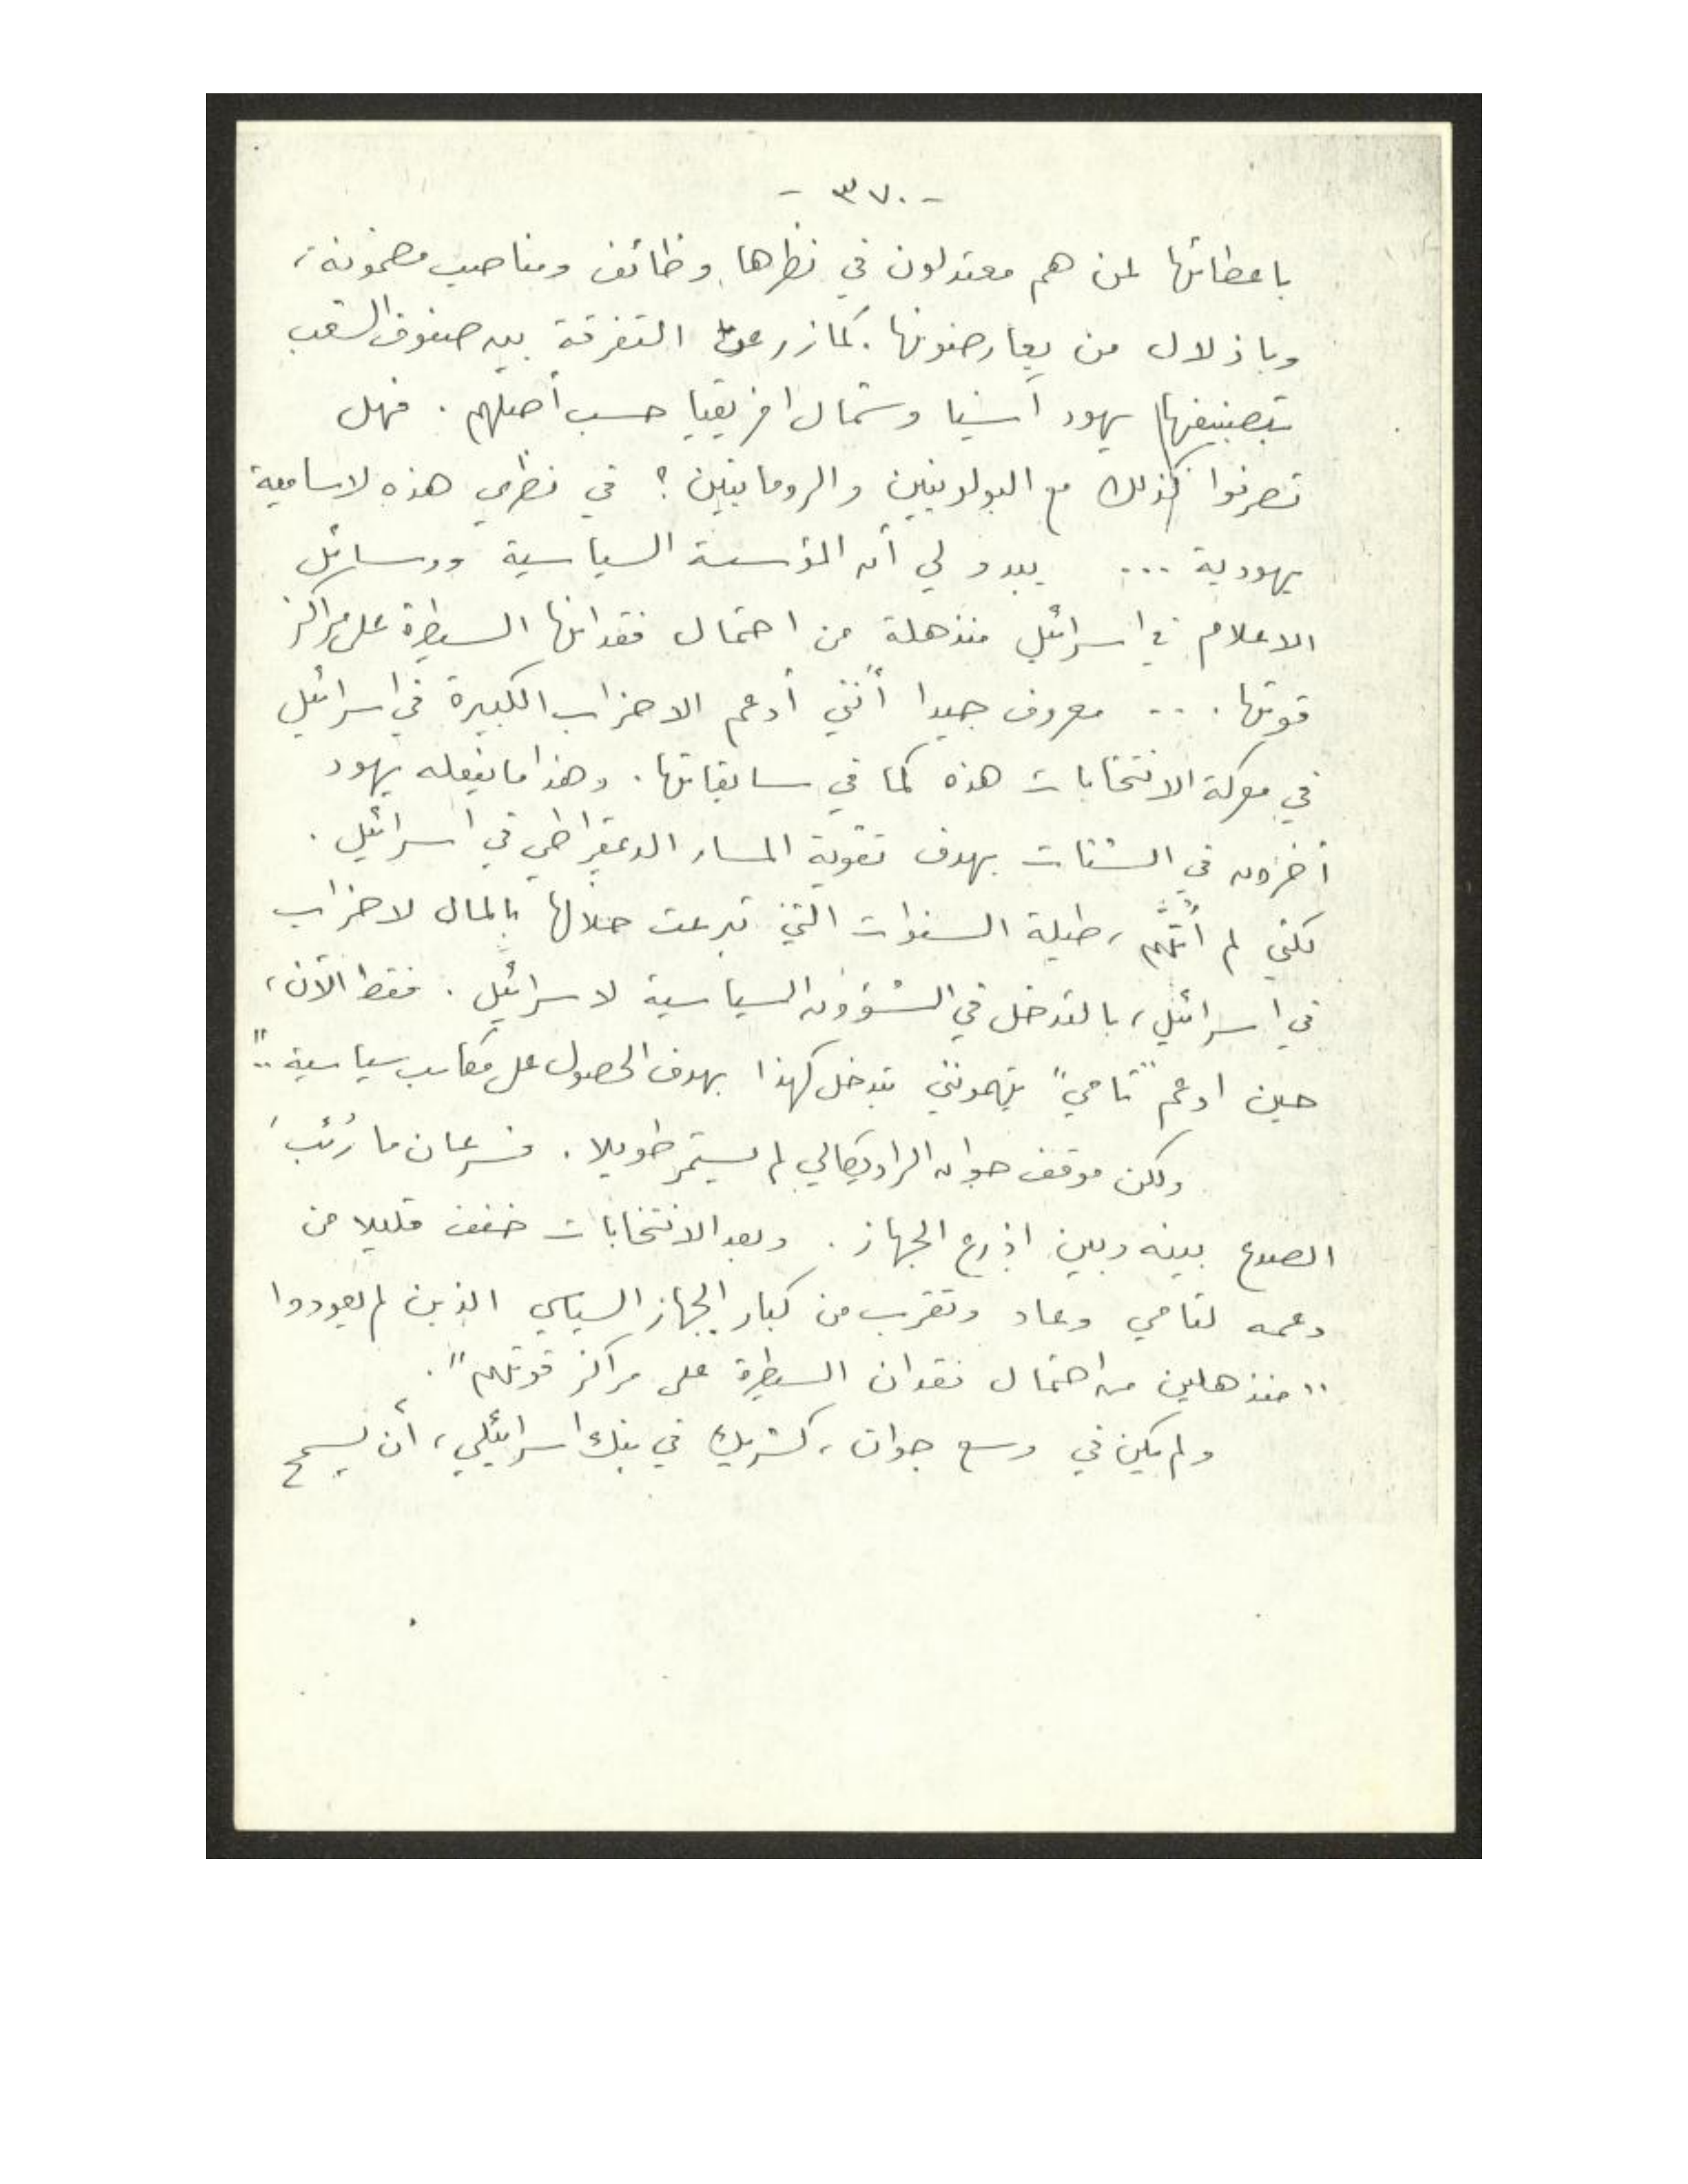 - ٣٧٠ -
باعطائها لمن هم معتدلون في نظرها وظائف ومناصب مضمونة،
وباذلال من يعارضونها. كما زرعت التفرقة بين صفوف الشعب
بتصنيفها يهود آسيا وشمال افريقيا حسب أصلهم. فهل
تصرفوا كذلك مع البولونيين والرومانيين؟ في نظري هذه لاسامية
يهودية ... يبدو لي أن المؤسسة السياسية ووسائل
الاعلام في اسرائيل منذهلة من احتمال فقدانها السيطرة على مراكز
قوتها. .. معروف جيدا أنني أدعم الاحزاب الكبيرة في اسرائيل
في معركة الانتخابات هذه كما في سابقاتها. وهذا ما يفعله يهود
أخرون في الشتات بهدف تقوية المسار الديمقراطي في اسرائيل.
لكني لم أتهم، طيلة السنوات التي تبرعت خلالها بالمال لاحزاب
في اسرائيل، بالتدخل في الشؤون السياسية لاسرائيل. فقط الآن،
حين ادعم "تامي" يتهمونني بتدخل كهذا بهدف الحصول على مكاسب سياسية.."
ولكن موقف جوان الراديكالي لم يستمر طويلا. فسرعان ما رُئب
الصدع بينه وبين اذرع الجهاز. وبعد الانتخابات خفف قليلا من
دعمه لتامي وعاد وتقرب من كبار الجهاز السياسي الذين لم يعودوا
"منذهلين من احتمال فقدان السيطرة على مراكز قوتهم".
ولم يكن في وسع جوان، كشريك في بنك اسرائيلي، أن يسمح